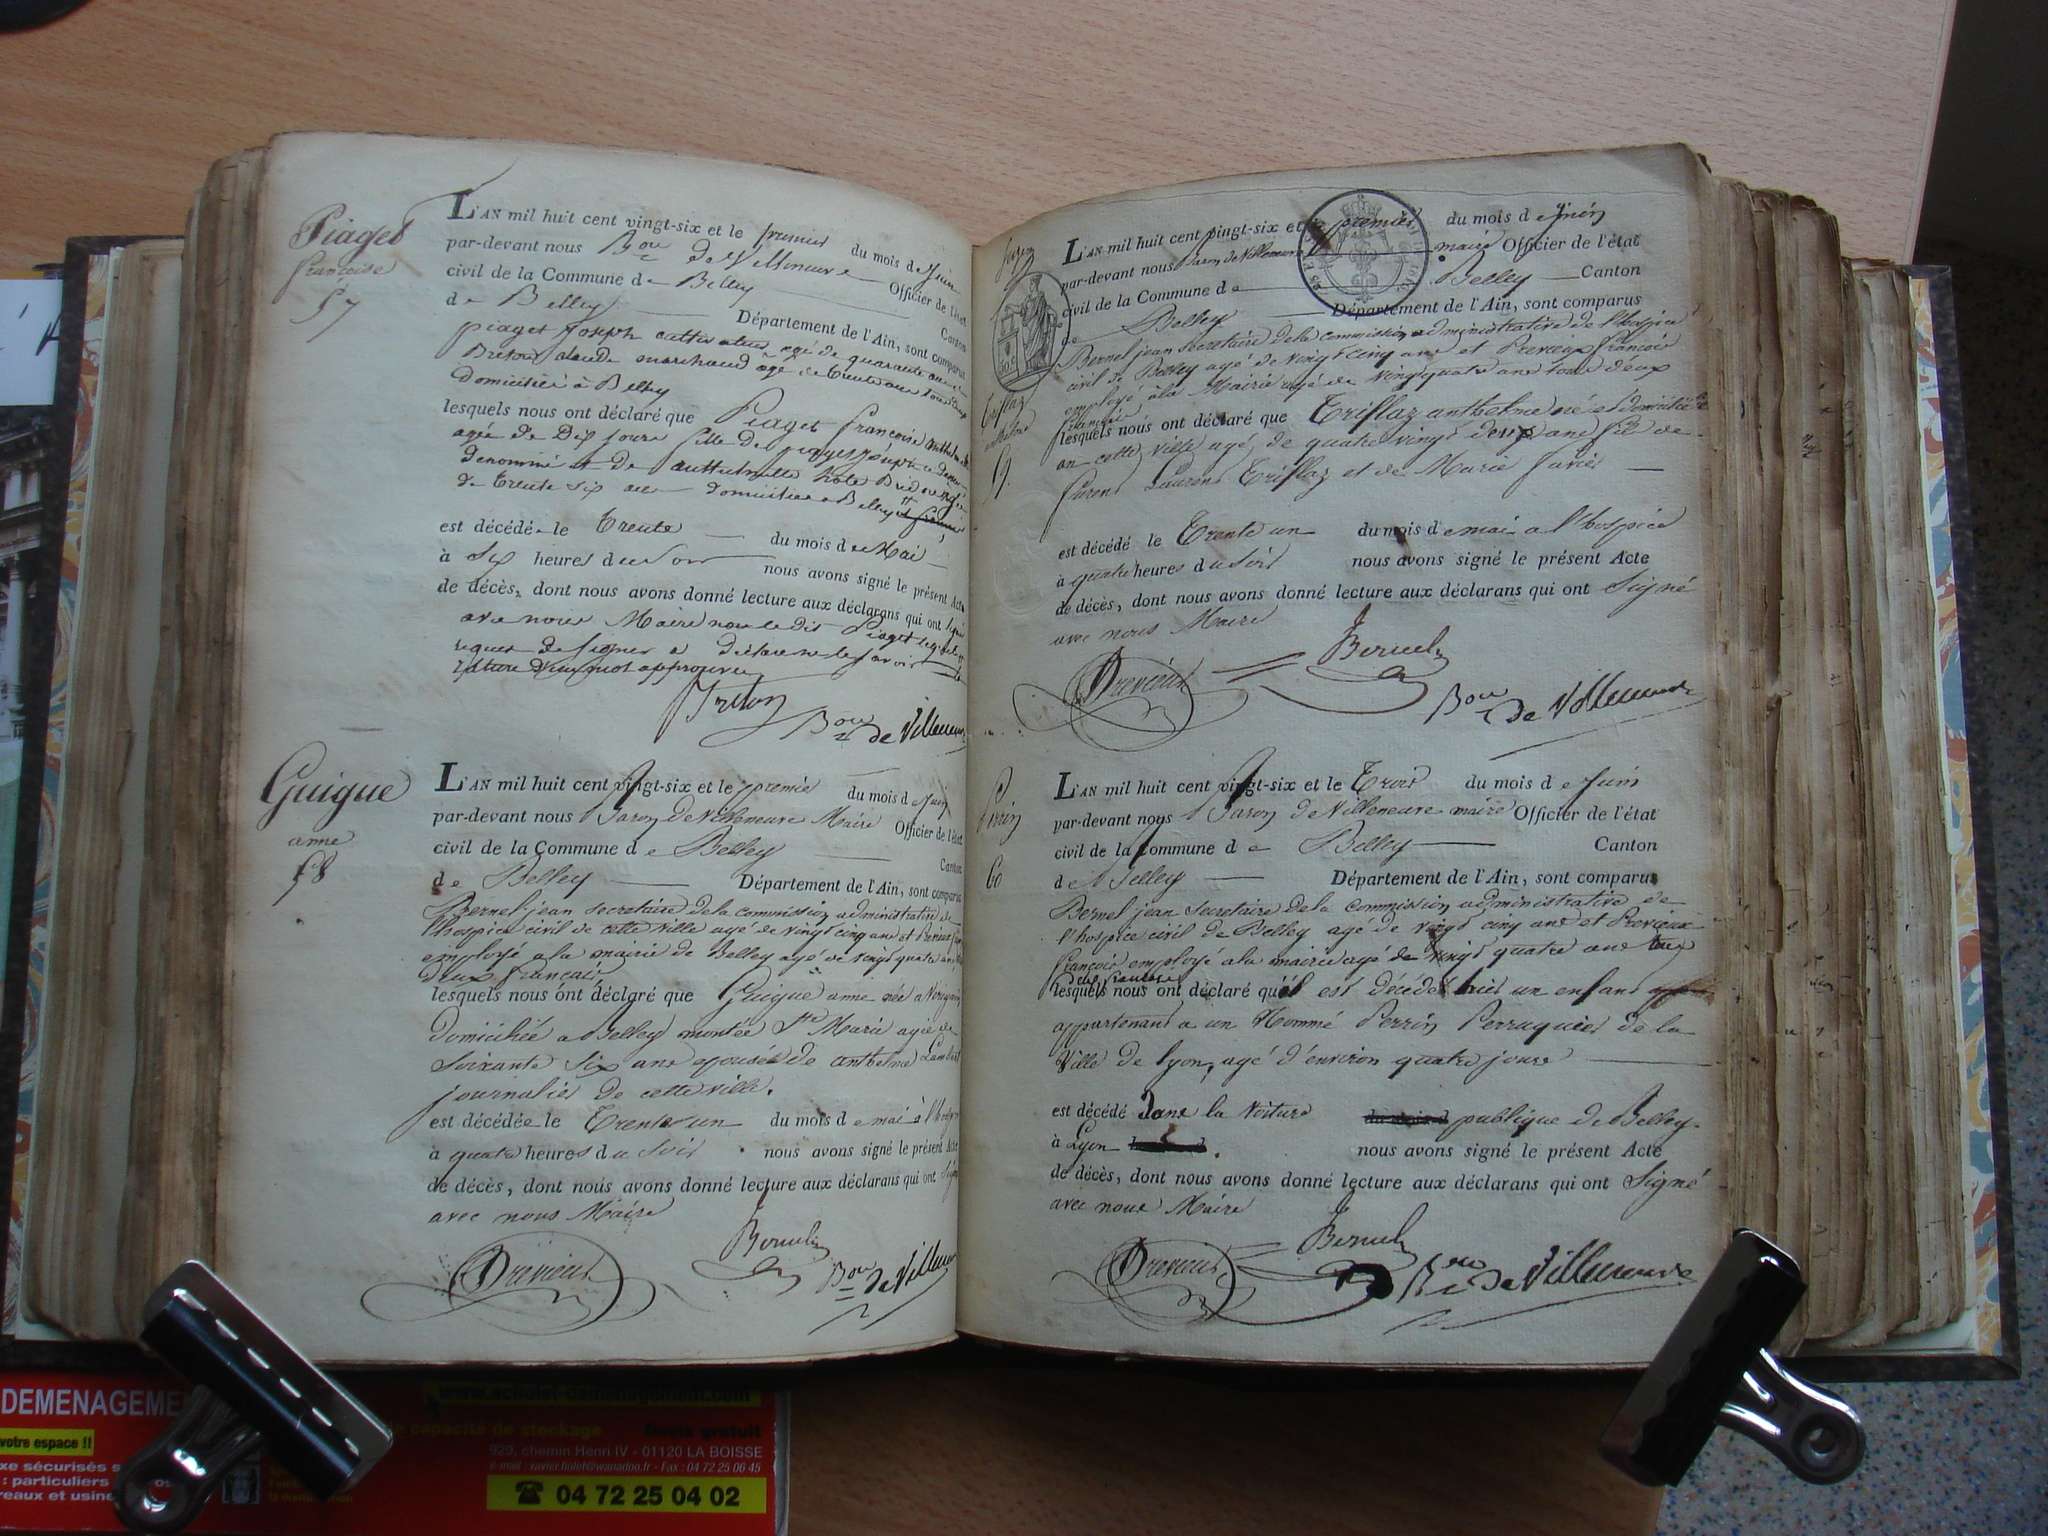 Piaget
françoise
57
L'AN mil huit cent vingt-six et le premier du mois de Juin
par-devant nous Bon de Villeneuve Officier de l'état
civil de la Commune de Belley Canton
de Belley Département de l'Ain, sont comparus
piaget Joseph cultivateur agé de quarante
Breton claude marchand agé de trente
domiciliés à Belley
lesquels nous ont déclaré que Piaget françoise
agée de Dix jours fille de piaget joseph
denommé et de
de trente six domiciliée a Belley
est décédé le trente du mois de Mai
à Six heures du Soir nous avons signé le présent Acte
de décès, dont nous avons donné lecture aux déclarans qui ont signé
avec nous Maire non le dit Piaget
requis de signer a déclaré ne le savoir
rature d'un mot approuvée
Breton
Bon de Villeneuve
Guigue
anne
58
L'AN mil huit cent vingt-six et le premier du mois de Juin
par-devant nous Baron de Villeneuve Maire Officier de l'état
civil de la Commune de Belley Canton
de Belley Département de l'Ain, sont comparus
Bernel jean secretaire de la commission administrative de
l'hospice civil de cette ville agé de vingt cinq ans et Drevieux
employé a la mairie de Belley agé de vingt quatre ans
deux français
lesquels nous ont déclaré que Guigue anne née a
domiciliée a Belley montée Ste Marie agée de
soixante six ans epouse de anthelme Lambert
journalier de cette ville.
est décédée le trente un du mois de mai à l'hospice
à quatre heures du soir nous avons signé le présent Acte
de décès, dont nous avons donné lecture aux déclarans qui ont signé
avec nous Maire
Drevieux Bernel Bon de Villeneuve
triflaz
anthelme
59
L'AN mil huit cent vingt-six et le premier du mois de Juin
par-devant nous Baron de Villeneuve maire Officier de l'état
civil de la Commune de Belley Canton
de Belley Département de l'Ain, sont comparus
Bernel jean secretaire de la commission administrative de l'hospice
civil de Belley agé de vingt cinq ans et Drevieux françois
employé à la Mairie agé de vingt quatre ans tous deux
français
lesquels nous ont déclaré que Triflaz anthelme né et domicilié
en cette ville agé de quatre vingt deux ans fils de
furent Laurent Triflaz et de Marie
est décédé le trente un du mois de mai a l'hospice
à quatre heures du soir nous avons signé le présent Acte
de décès, dont nous avons donné lecture aux déclarans qui ont signé
avec nous Maire
Drevieux Bernel Bon de Villeneuve
Perrin
60
L'AN mil huit cent vingt-six et le trois du mois de Juin
par-devant nous Baron de Villeneuve maire Officier de l'état
civil de la Commune de Belley Canton
de Belley Département de l'Ain, sont comparus
Bernel jean secretaire de la commission administrative de
l'hospice civil de Belley agé de vingt cinq ans et Drevieux
françois employé a la mairie agé de vingt quatre ans tous
deux français
lesquels nous ont déclaré qu'il est décédé hier un enfant
appartenant a un Nommé Perrin Perruquier de la
Ville de lyon, agé d'environ quatre jours
est décédé dans la voiture publique de Belley
à Lyon nous avons signé le présent Acte
de décès, dont nous avons donné lecture aux déclarans qui ont signé
avec nous Maire
Drevieux Bernel Bon de Villeneuve
DEMENAGEME
votre espace !!
xe sécurisés
: particuliers
reaux et usine
capacité de stockage Devis gratuit
929, chemin Henri IV - 01120 LA BOISSE
e-mail : xavier.holet@wanadoo.fr - Fax : 04 72 25 06 45
☎ 04 72 25 04 02